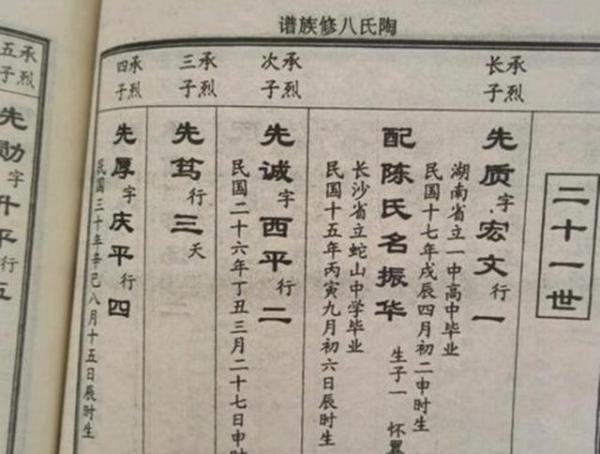 陶氏八修族谱
二十一世
承烈长子
先质字宏文行一
湖南省立一中高中毕业
民国十七年戊辰四月初二申时生
配陈氏名振华
生子一 怀翼
长沙省立蛇山中学毕业
民国十五年丙寅九月初六日辰时生
承烈次子
先诚字西平行二
民国二十六年丁丑三月二十七日申时
承烈三子
先笃行三夭
承烈四子
先厚字庆平行四
民国三十年辛巳八月十五日辰时生
承烈五子
先勋字升平行五